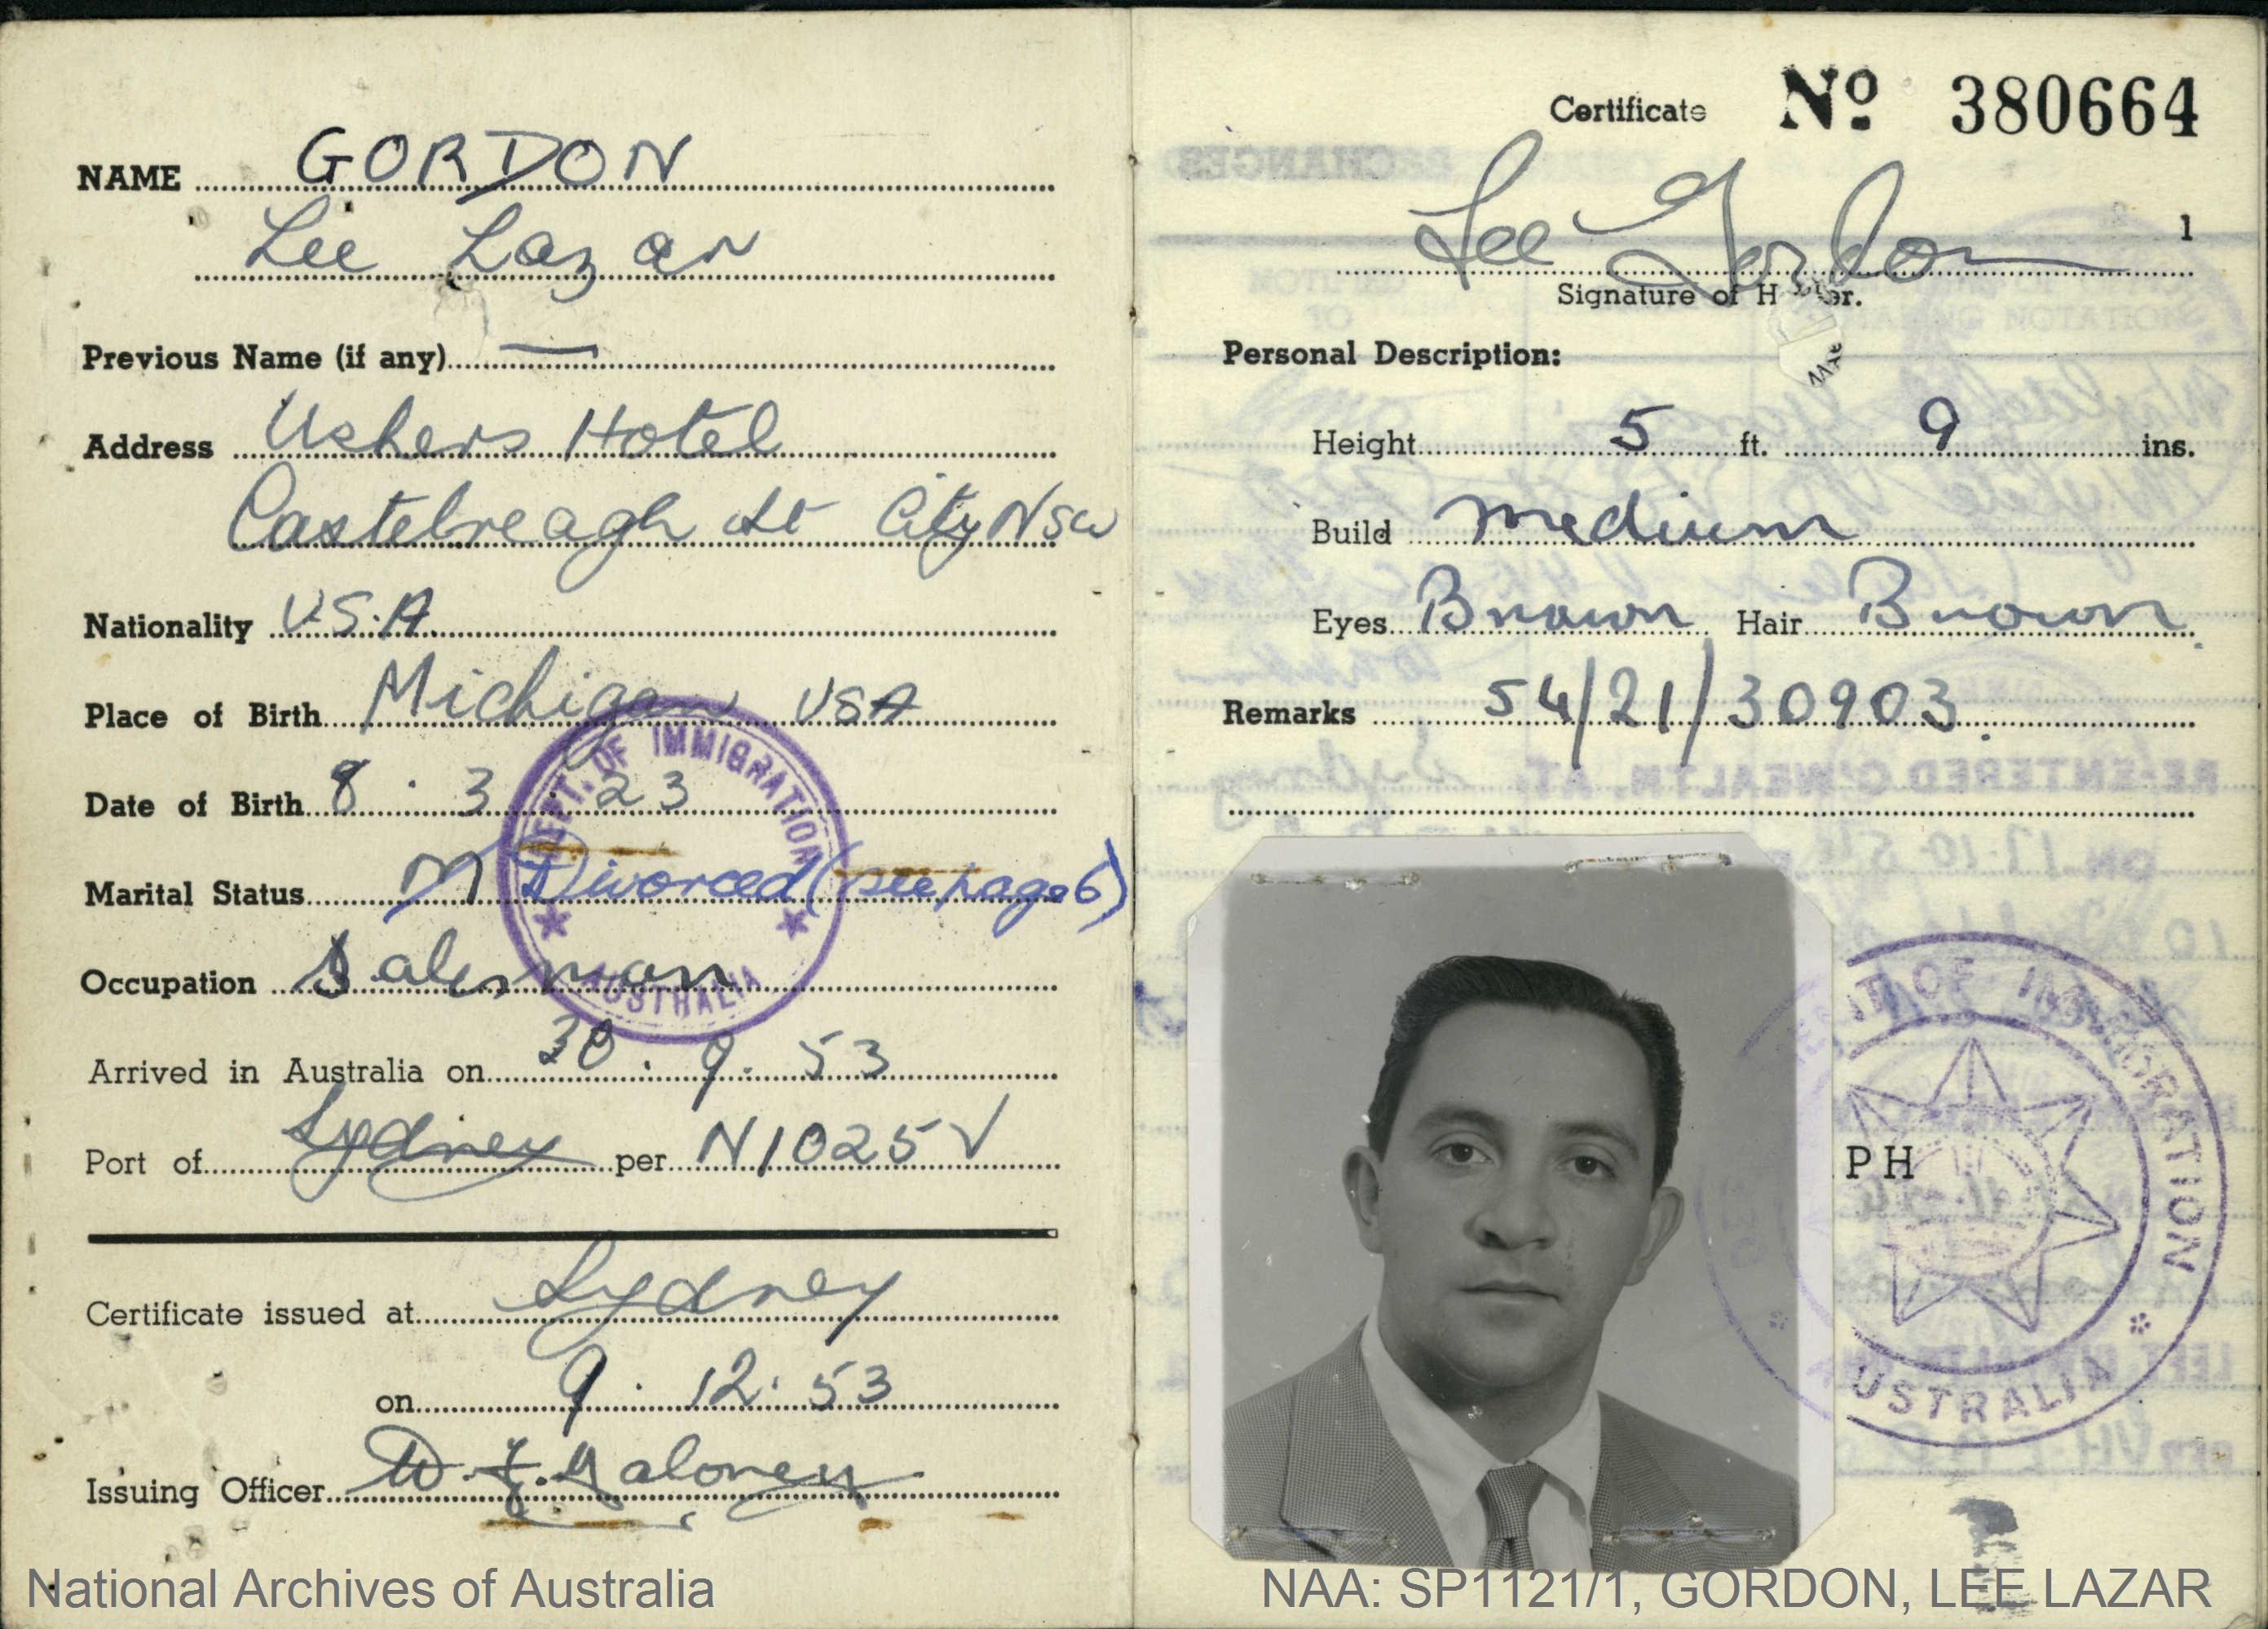 NAME GORDON
Lee Lazar
Previous Name (if any) —
Address Ushers Hotel
Castelreagh St City NSW
Nationality U.S.A.
Place of Birth Michigan USA
Date of Birth 8 . 3 . 23
Marital Status M Divorced (see page 6)
Occupation Salesman
Arrived in Australia on 30 . 9 . 53
Port of Sydney per N1025V
Certificate issued at Sydney
on 9 . 12 . 53
Issuing Officer
DEPT. OF IMMIGRATION
AUSTRALIA
Certificate No 380664
Lee Gordon
1
Signature of
Personal Description:
Height 5 ft. 9 ins.
Build medium
Eyes Brown Hair Brown
Remarks 54/21/30903
PH
OF IMMIGRATION
AUSTRALIA
National Archives of Australia
NAA: SP1121/1, GORDON, LEE LAZAR